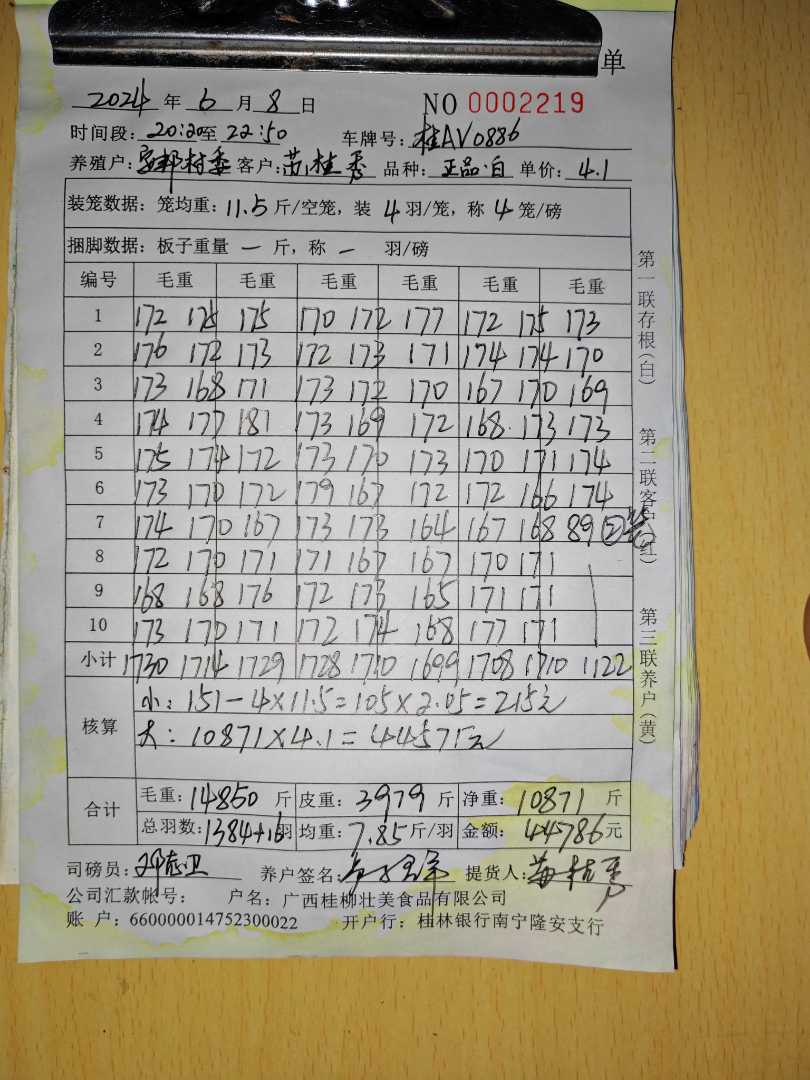 单
2024 年 6 月 8 日 NO 0002219
时间段: 20:20至 22:50 车牌号: 桂AV0886
养殖户: 邦村委 客户: 苏桂秀 品种: 正品·白 单价: 4.1
装笼数据: 笼均重: 11.5 斤/空笼, 装 4 羽/笼, 称 4 笼/磅
捆脚数据: 板子重量 一 斤, 称 一 羽/磅
编号 毛重 毛重 毛重 毛重 毛重 毛重
1 172 175 175 170 172 177 172 175 173
2 176 172 173 172 173 171 174 174 170
3 173 168 171 173 172 170 167 170 169
4 174 177 181 173 169 172 168 173 173
5 175 174 172 173 170 173 170 171 174
6 173 170 172 179 167 172 172 166 174
7 174 170 167 173 173 164 167 168 89 ②笼
8 172 170 171 171 167 167 170 171
9 168 168 176 172 173 165 171 171
10 173 170 171 172 174 168 177 171
小计 1730 1714 1729 1728 1710 1699 1708 1710 1122
核算
小: 151-4×11.5=105×2.05=215元
大: 10871×4.1=44571元
合计
毛重: 14850 斤 皮重: 3979 斤 净重: 10871 斤
总羽数: 1384+16羽 均重: 7.85 斤/羽 金额: 44786 元
司磅员: 邓志卫 养户签名: 提货人: 苏桂秀
公司汇款帐号: 户名: 广西桂柳壮美食品有限公司
账 户: 660000014752300022 开户行: 桂林银行南宁隆安支行
第一联存根(白)
第二联客户(红)
第三联养户(黄)